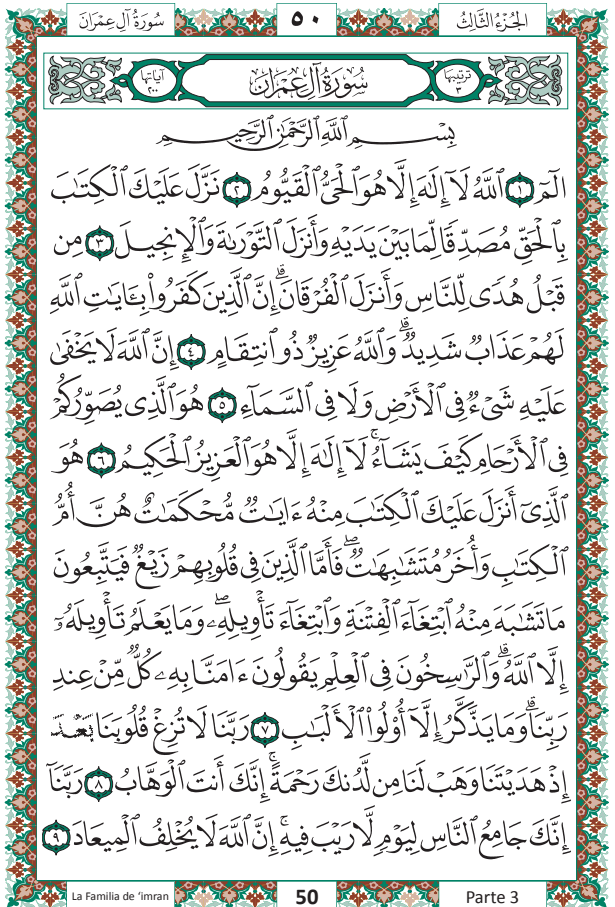 الجُزْءُ الثَّالِثُ
٥٠
سُورَةُ آلِ عِمْرَانَ
تَرْتِيبُهَا ٣
سُورَةُ آلِ عِمْرَانَ
آيَاتُهَا ٢٠٠
بِسْمِ ٱللَّهِ ٱلرَّحْمَٰنِ ٱلرَّحِيمِ
الٓمٓ ١ ٱللَّهُ لَآ إِلَٰهَ إِلَّا هُوَ ٱلْحَىُّ ٱلْقَيُّومُ ٢ نَزَّلَ عَلَيْكَ ٱلْكِتَٰبَ
بِٱلْحَقِّ مُصَدِّقًا لِّمَا بَيْنَ يَدَيْهِ وَأَنزَلَ ٱلتَّوْرَىٰةَ وَٱلْإِنجِيلَ ٣ مِن
قَبْلُ هُدًى لِّلنَّاسِ وَأَنزَلَ ٱلْفُرْقَانَ ۗ إِنَّ ٱلَّذِينَ كَفَرُوا۟ بِـَٔايَٰتِ ٱللَّهِ
لَهُمْ عَذَابٌ شَدِيدٌ ۗ وَٱللَّهُ عَزِيزٌ ذُو ٱنتِقَامٍ ٤ إِنَّ ٱللَّهَ لَا يَخْفَىٰ
عَلَيْهِ شَىْءٌ فِى ٱلْأَرْضِ وَلَا فِى ٱلسَّمَآءِ ٥ هُوَ ٱلَّذِى يُصَوِّرُكُمْ
فِى ٱلْأَرْحَامِ كَيْفَ يَشَآءُ ۚ لَآ إِلَٰهَ إِلَّا هُوَ ٱلْعَزِيزُ ٱلْحَكِيمُ ٦ هُوَ
ٱلَّذِىٓ أَنزَلَ عَلَيْكَ ٱلْكِتَٰبَ مِنْهُ ءَايَٰتٌ مُّحْكَمَٰتٌ هُنَّ أُمُّ
ٱلْكِتَٰبِ وَأُخَرُ مُتَشَٰبِهَٰتٌ ۖ فَأَمَّا ٱلَّذِينَ فِى قُلُوبِهِمْ زَيْغٌ فَيَتَّبِعُونَ
مَا تَشَٰبَهَ مِنْهُ ٱبْتِغَآءَ ٱلْفِتْنَةِ وَٱبْتِغَآءَ تَأْوِيلِهِۦ ۗ وَمَا يَعْلَمُ تَأْوِيلَهُۥٓ
إِلَّا ٱللَّهُ ۗ وَٱلرَّٰسِخُونَ فِى ٱلْعِلْمِ يَقُولُونَ ءَامَنَّا بِهِۦ كُلٌّ مِّنْ عِندِ
رَبِّنَا ۗ وَمَا يَذَّكَّرُ إِلَّآ أُو۟لُوا۟ ٱلْأَلْبَٰبِ ٧ رَبَّنَا لَا تُزِغْ قُلُوبَنَا بَعْدَ
إِذْ هَدَيْتَنَا وَهَبْ لَنَا مِن لَّدُنكَ رَحْمَةً ۚ إِنَّكَ أَنتَ ٱلْوَهَّابُ ٨ رَبَّنَآ
إِنَّكَ جَامِعُ ٱلنَّاسِ لِيَوْمٍ لَّا رَيْبَ فِيهِ ۚ إِنَّ ٱللَّهَ لَا يُخْلِفُ ٱلْمِيعَادَ ٩
La Familia de 'imran
50
Parte 3